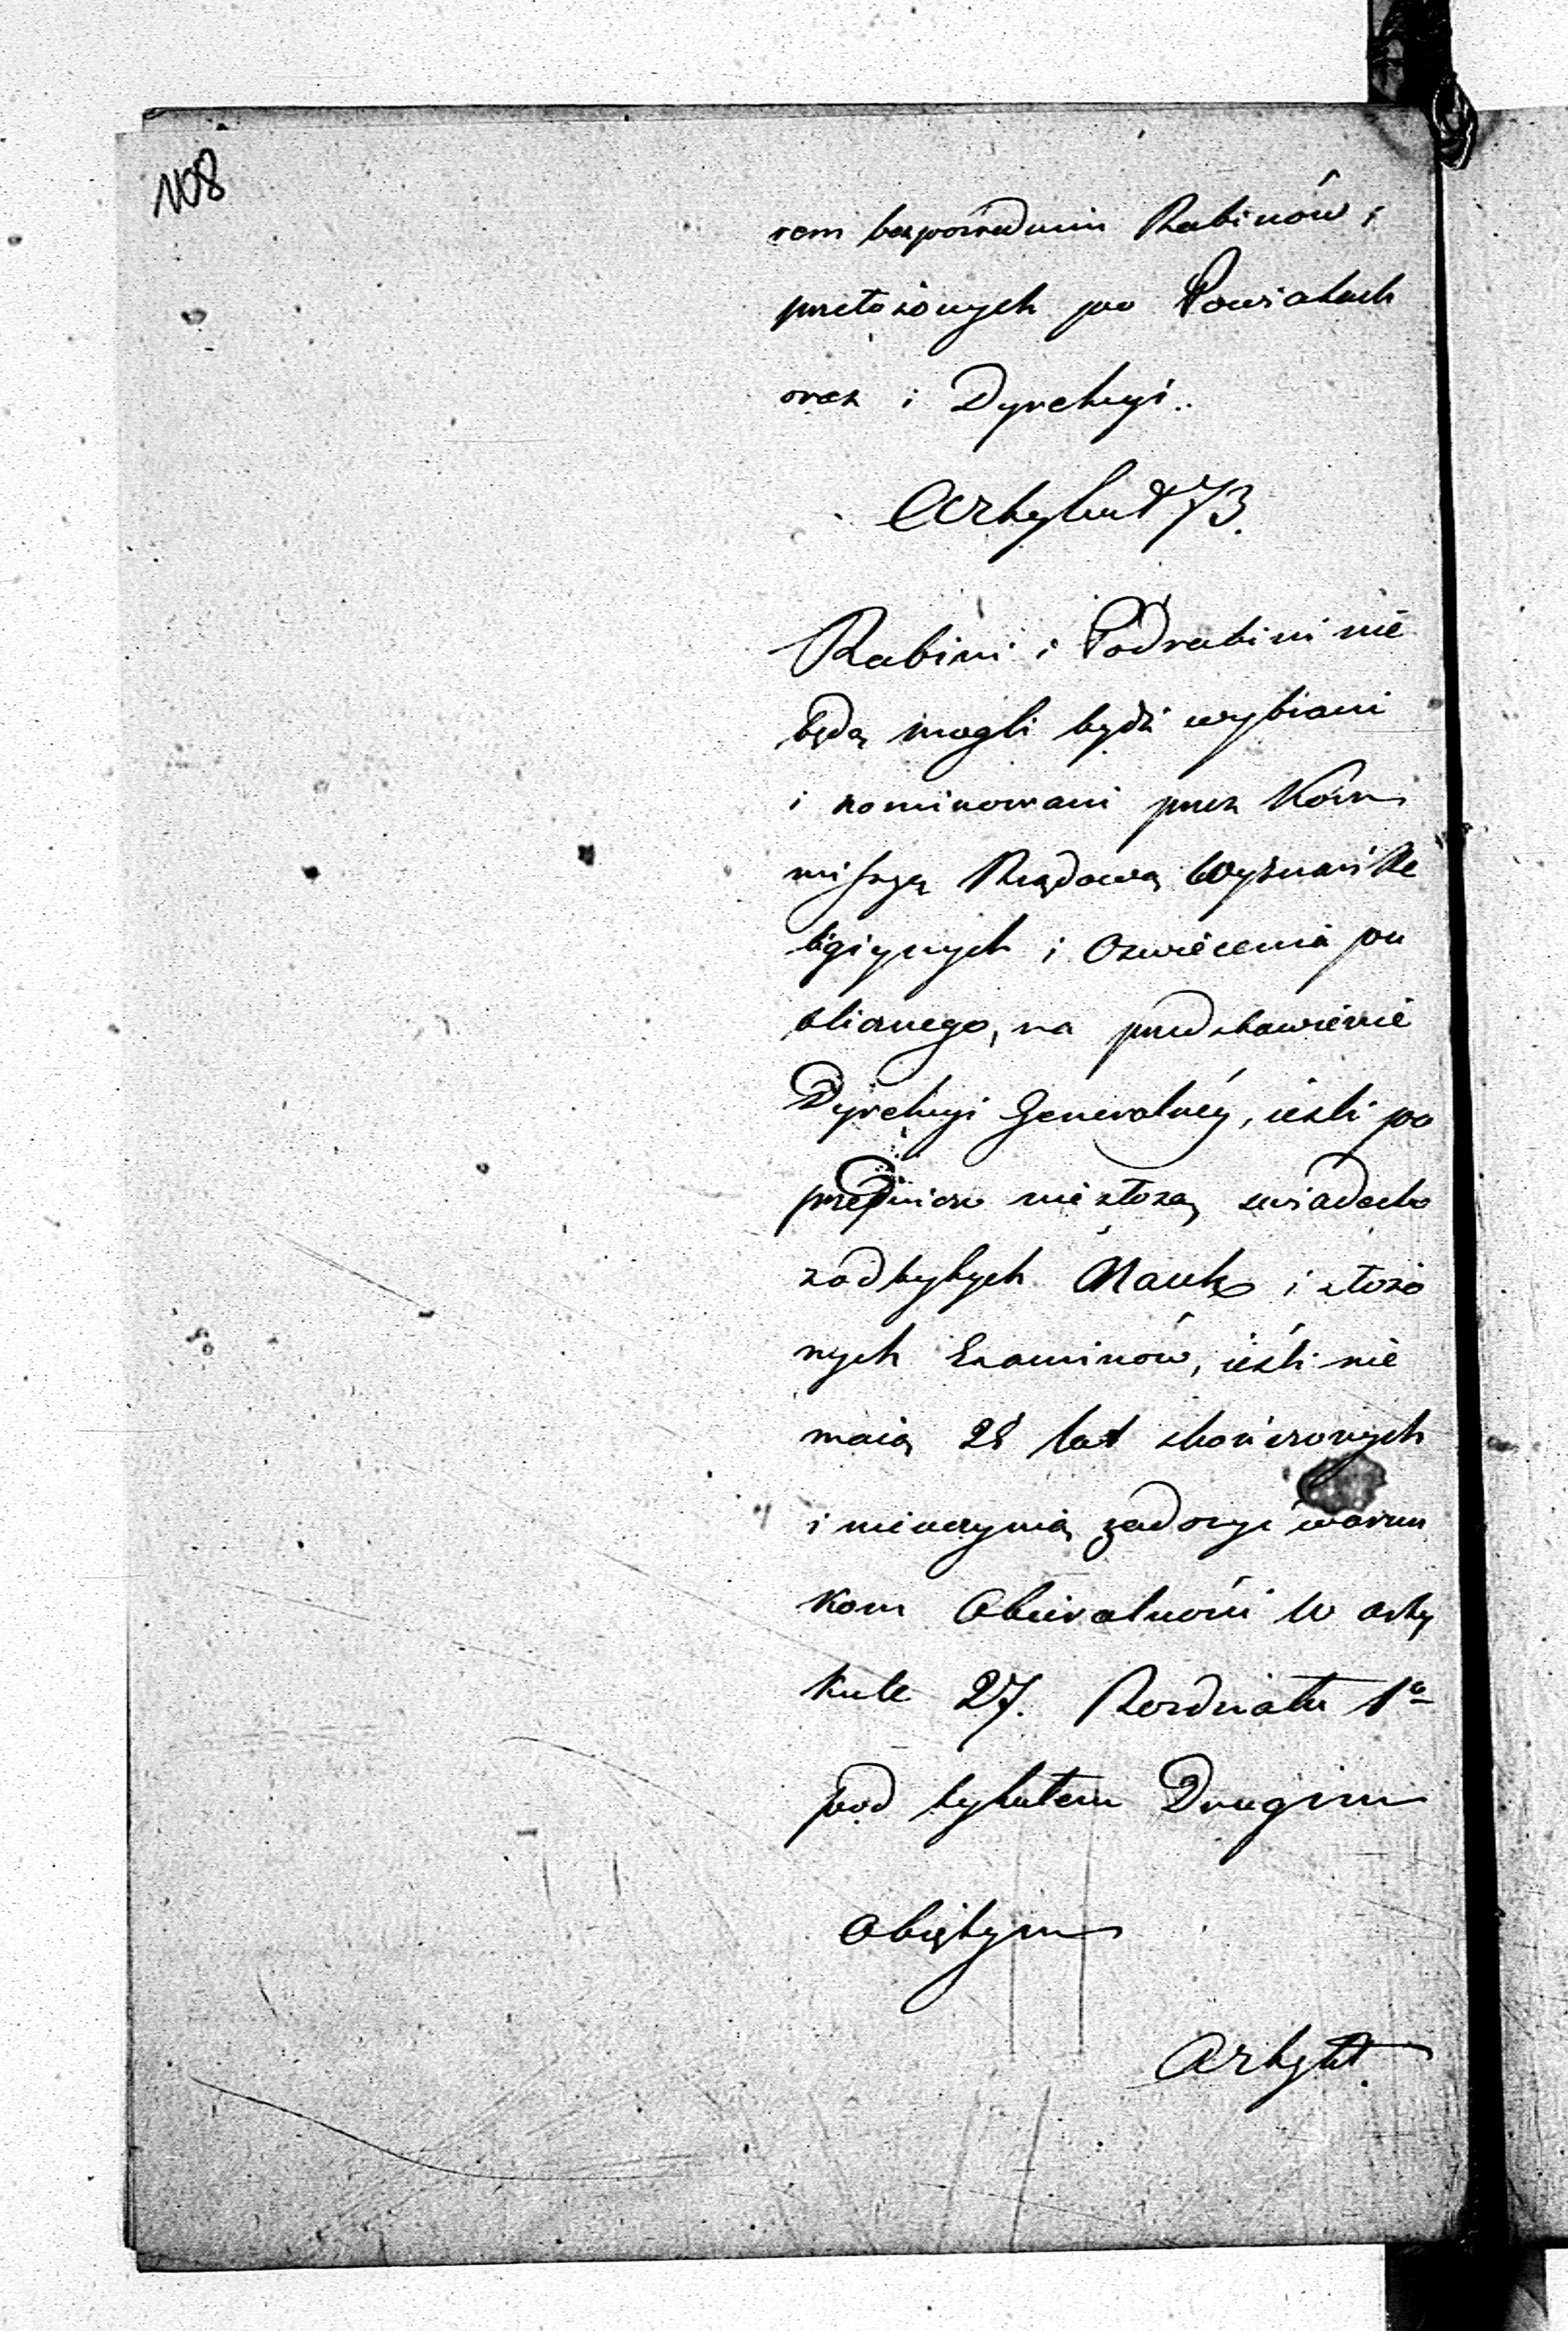 108
rem bezpośrednim Rabinów i
przełożonych po Powiatach
oraz i Dyrekcyi.
Artykuł 73.
Rabini i Podrabini nie
będą mogli bydź wybrani
i nominowani przez Kom
missyą Rządową Wyznań Re
ligiynych i Oświecenia pu
blicznego, na przedstawienie
Dyrekcyi Generalnéy, ieśli po
przednio nie złożą świadectw
z odbytych Nauk i złożo
nych Examinów, ieśli nie
maią 28 lat skończonych
i nieuczynią zadosyć warun
kom Obieralności w arty
kule 27. Rozdziału 1o
pod tytułem Drugim
obiętym
Artykuł.